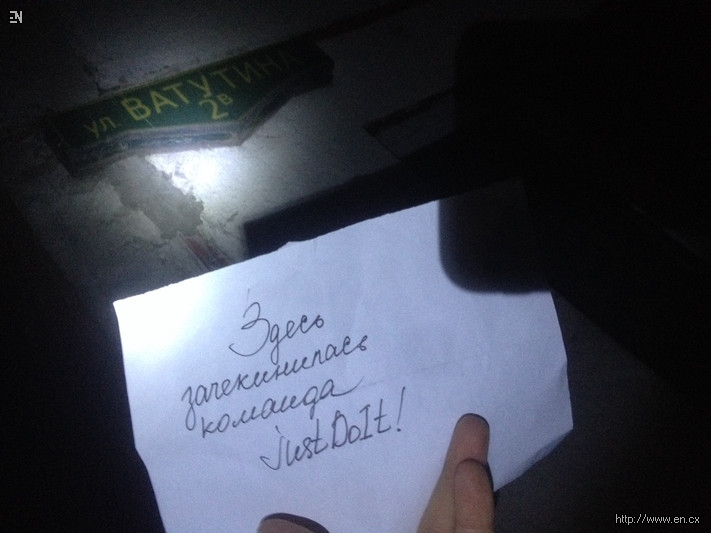 EN
ул. ВАТУТИНА
2в
Здесь
зачекинилась
команда
justDoIt!
http://www.en.cx